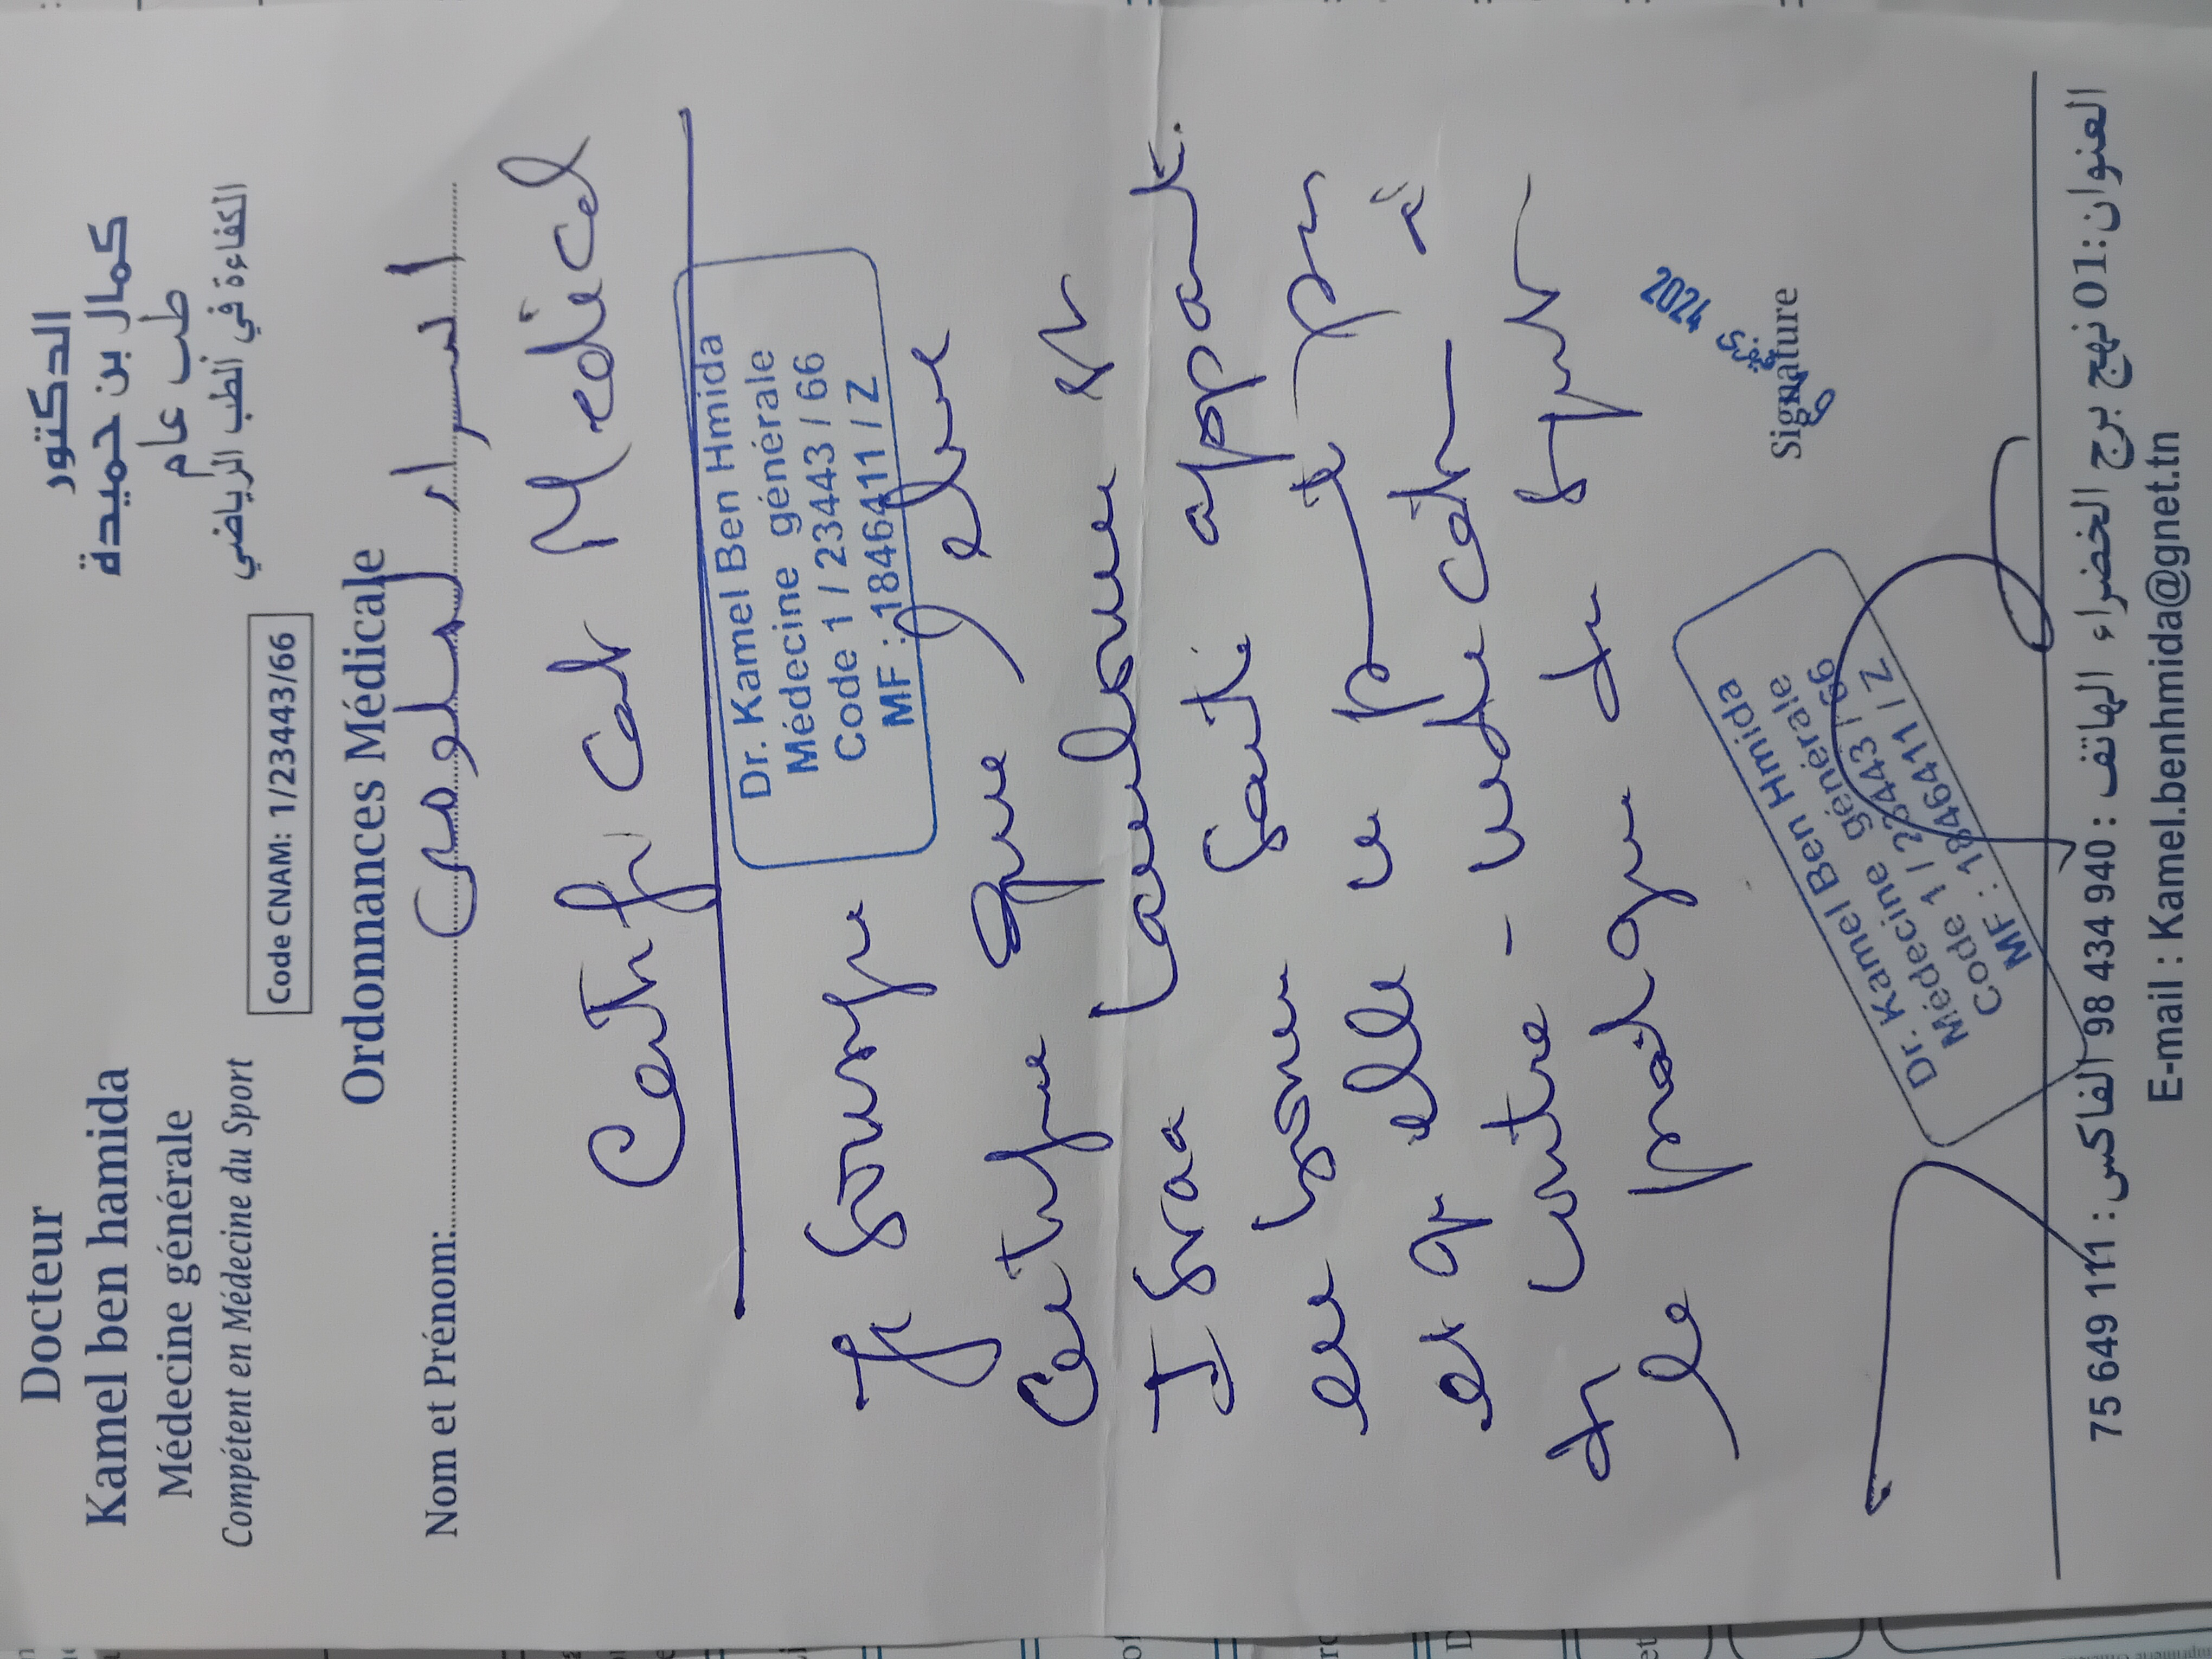 Docteur
Kamel ben hamida
Médecine générale
Compétent en Médecine du Sport
الدكتور
كمال بن حميدة
طب عام
الكفاءة في الطب الرياضي
Code CNAM: 1/23443/66
Ordonnances Médicale
Nom et Prénom: اسراء
Certificat Medical
Dr. Kamel Ben Hmida
Médecine générale
Code 1 / 23443 / 66
MF : 1846411 / Z
Je soussigné
Certifie que
Israa
en bonne Santé apparente
et qu'elle ne présente pas
de contre - indication à
la pratique du sport
2024
Signature
Dr. Kamel Ben Hmida
Médecine générale
Code 1 / 23443 / 66
MF : 1846411 / Z
العنوان: 01 نهج برج الخضراء الهاتف : 98 434 940 الفاكس : 75 649 111
E-mail : Kamel.benhmida@gnet.tn